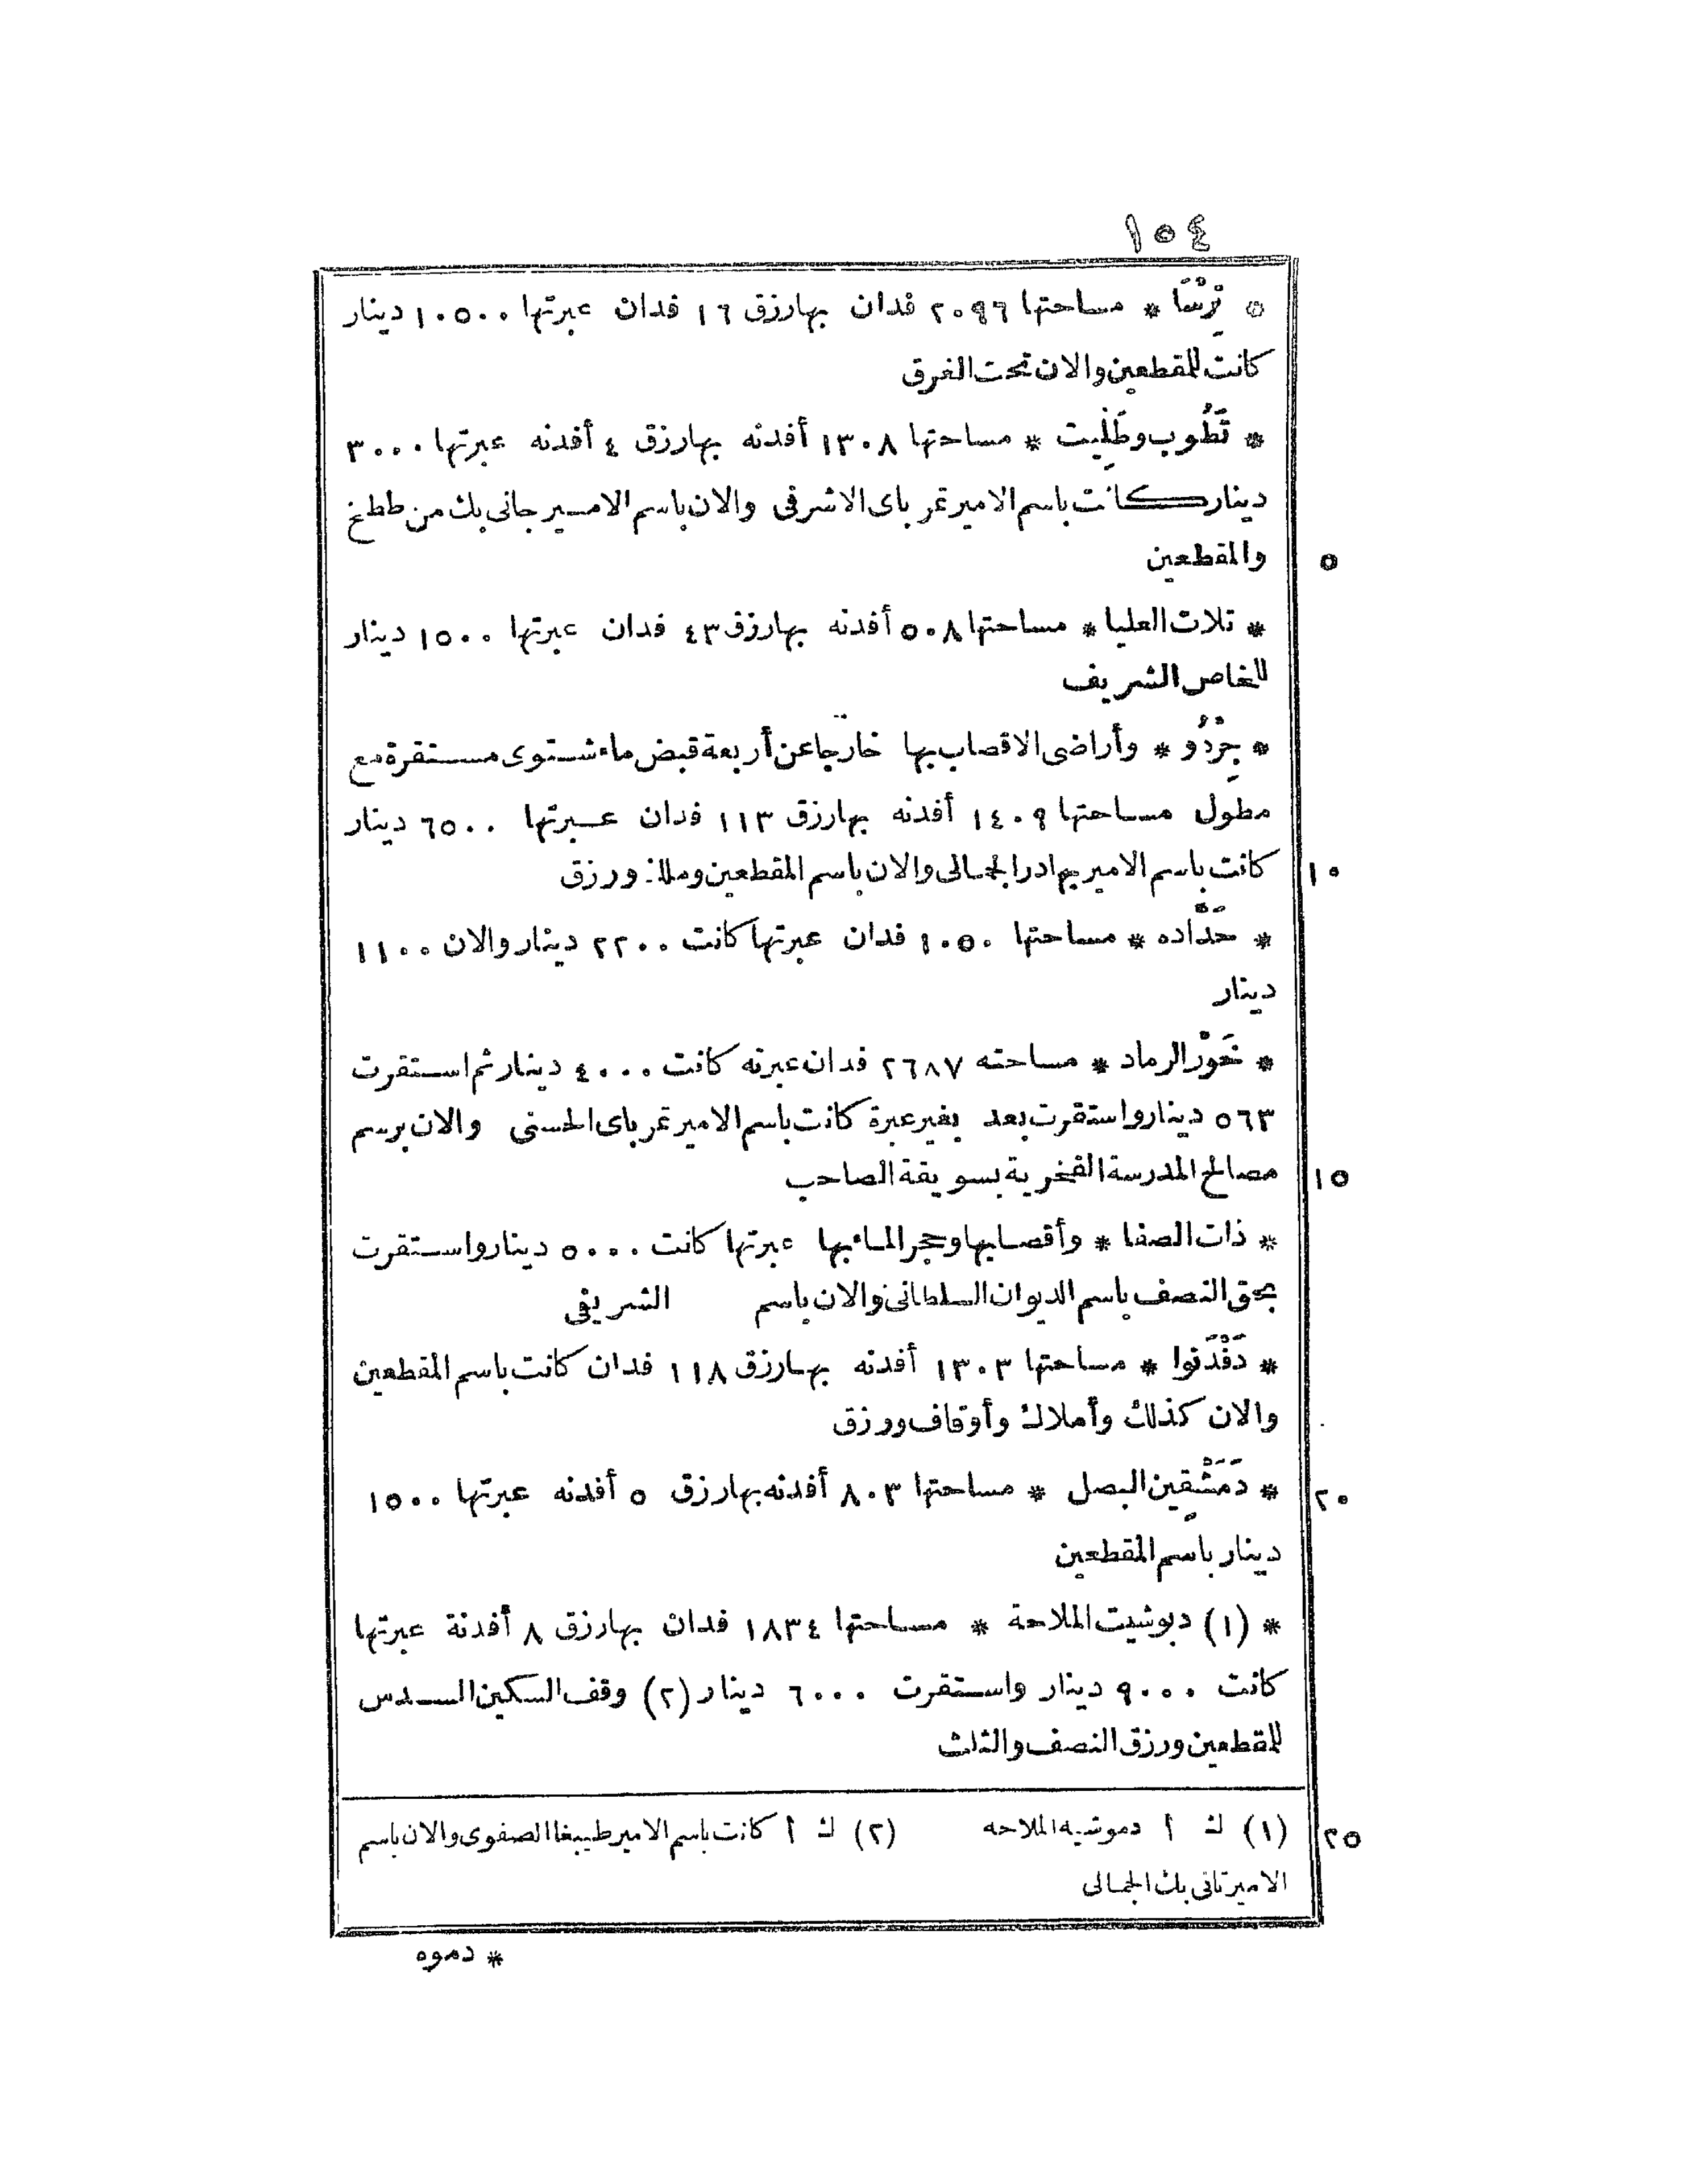 ١٥٤
* تِرْسَا * مساحتها ٢٠٩٦ فدان بهارزق ١٦ فدان عبرتها ١٠٥٠٠ دينار
كانت للمقطعين والان تحت الغرق
* تَطُوب وطَلِيت * مساحتها ١٣٠٨ أفدنه بهارزق ٤ أفدنه عبرتها ٣٠٠٠
دينار كانت باسم الامير تمر باى الاشرفى والان باسم الامير جانى بك من ططخ
والمقطعين
٥
* تلات العليا * مساحتها ٥٠٨ أفدنه بهارزق ٤٣ فدان عبرتها ١٥٠٠ دينار
للخاص الشريف
* جِرْدُو * وأراضى الاقصاب بها خارجا عن أربعة قبض ماء شتوى مستقرة مع
مطول مساحتها ١٤٠٩ أفدنه بهارزق ١١٣ فدان عبرتها ٦٥٠٠ دينار
كانت باسم الامير بهادر الجمالى والان باسم المقطعين وملك ورزق
١٠
* حَدَّاده * مساحتها ١٠٥٠ فدان عبرتها كانت ٢٢٠٠ دينار والان ١١٠٠
دينار
* خَوْر الرماد * مساحته ٢٦٨٧ فدان عبرته كانت ٤٠٠٠ دينار ثم استقرت
٥٦٣ دينار واستقرت بعد بغير عبرة كانت باسم الامير تمر باى الحسنى والان برسم
مصالح المدرسة الفخرية بسويقة الصاحب
١٥
* ذات الصفا * وأقصابها وحجر الماء بها عبرتها كانت ٥٠٠٠ دينار واستقرت
بحق النصف باسم الديوان السلطانى والان باسم الشريفى
* دَفْدَنوا * مساحتها ١٣٠٣ أفدنه بهارزق ١١٨ فدان كانت باسم المقطعين
والان كذلك وأملاك وأوقاف ورزق
* دَمَشْقِين البصل * مساحتها ٨٠٣ أفدنه بهارزق ٥ أفدنه عبرتها ١٥٠٠
٢٠
دينار باسم المقطعين
* (١) دبوشيت الملاحة * مساحتها ١٨٣٤ فدان بهارزق ٨ أفدنة عبرتها
كانت ٩٠٠٠ دينار واستقرت ٦٠٠٠ دينار (٢) وقف السكين السدس
للمقطعين ورزق النصف والثلث
(١) ك أ دموشيه الملاحه (٢) ك أ كانت باسم الامير طيبغا الصفوى والان باسم
٢٥
الامير تانى بك الجمالى
* دموه